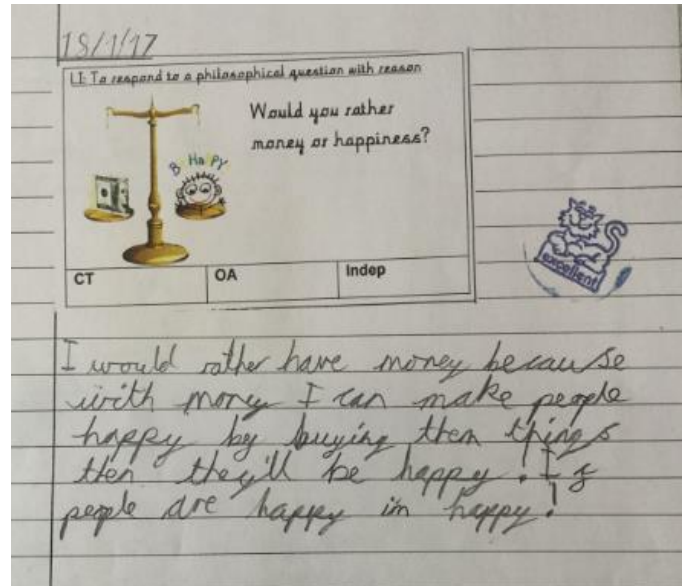 18/1/17
LI: To respond to a philosophical question with reason
Would you rather
money or happiness?
Be HaPPY
CT OA Indep
excellent
I would rather have money because
with money I can make people
happy by buying them things
then they'll be happy! If
people are happy im happy!